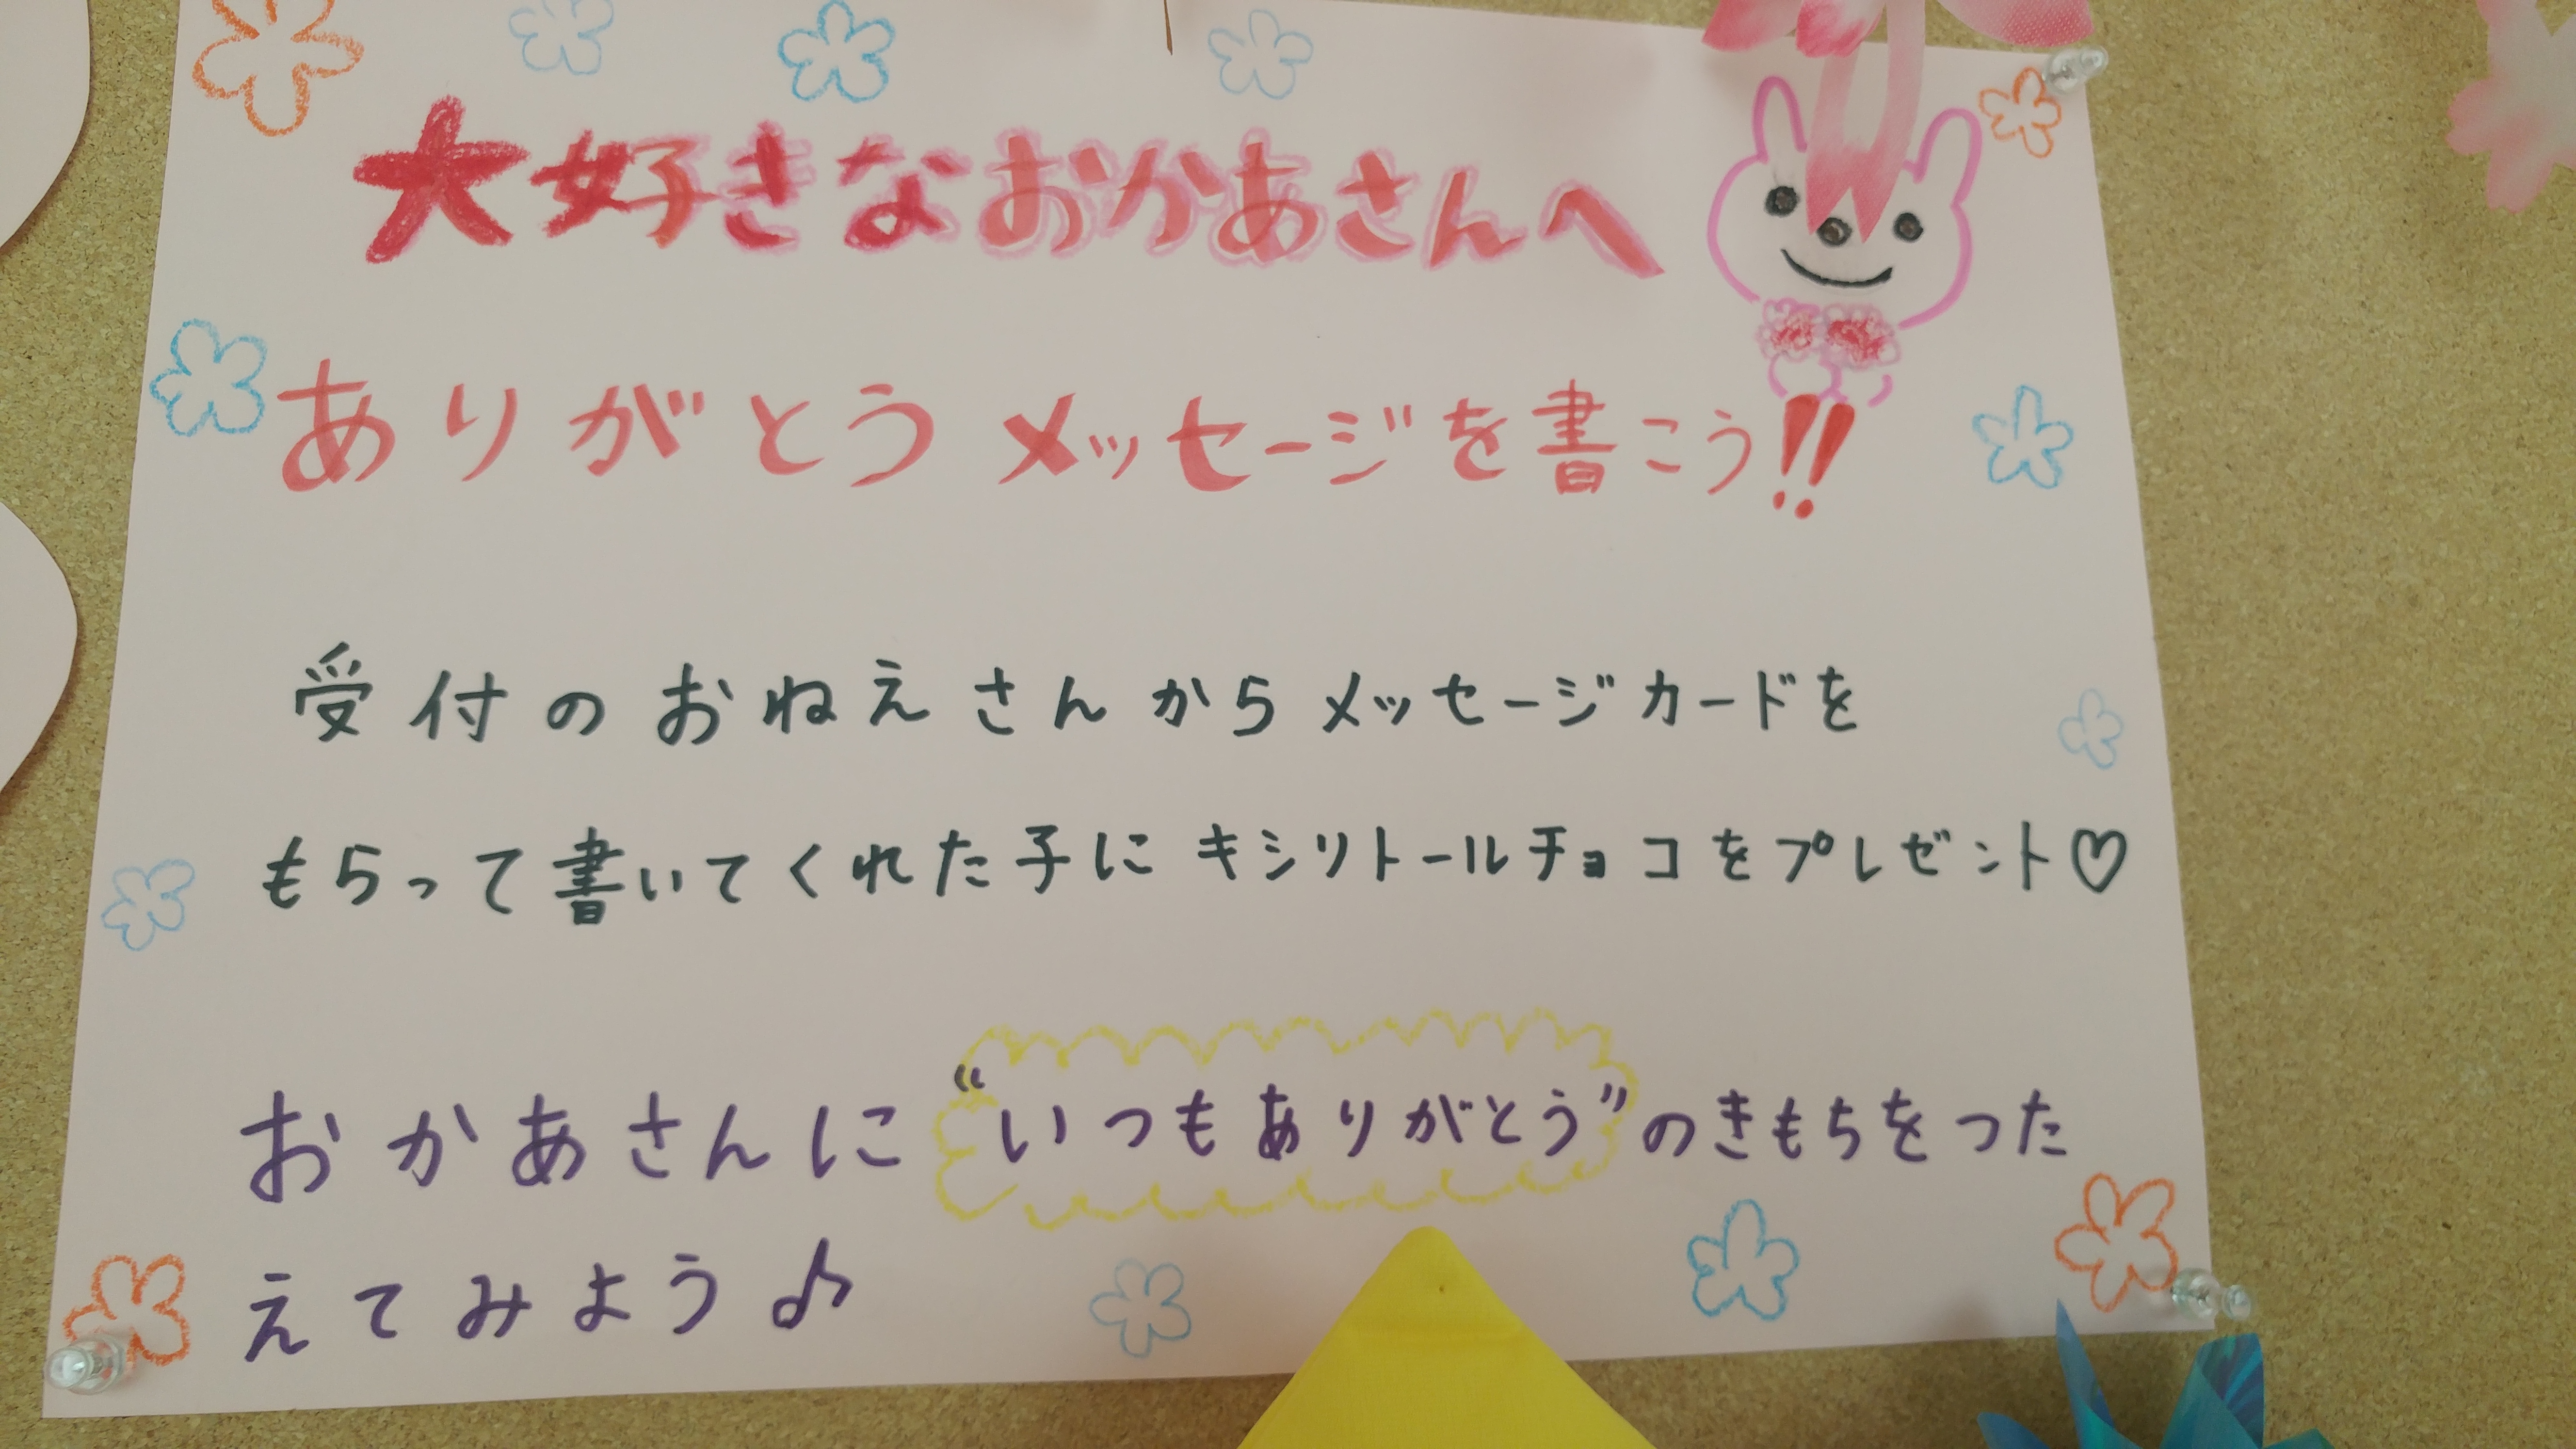 大好きなおかあさんへ
ありがとうメッセージを書こう!!
受付のおねえさんからメッセージカードを
もらって書いてくれた子にキシリトールチョコをプレゼント♡
おかあさんに“いつもありがとう”のきもちをつた
えてみよう♪